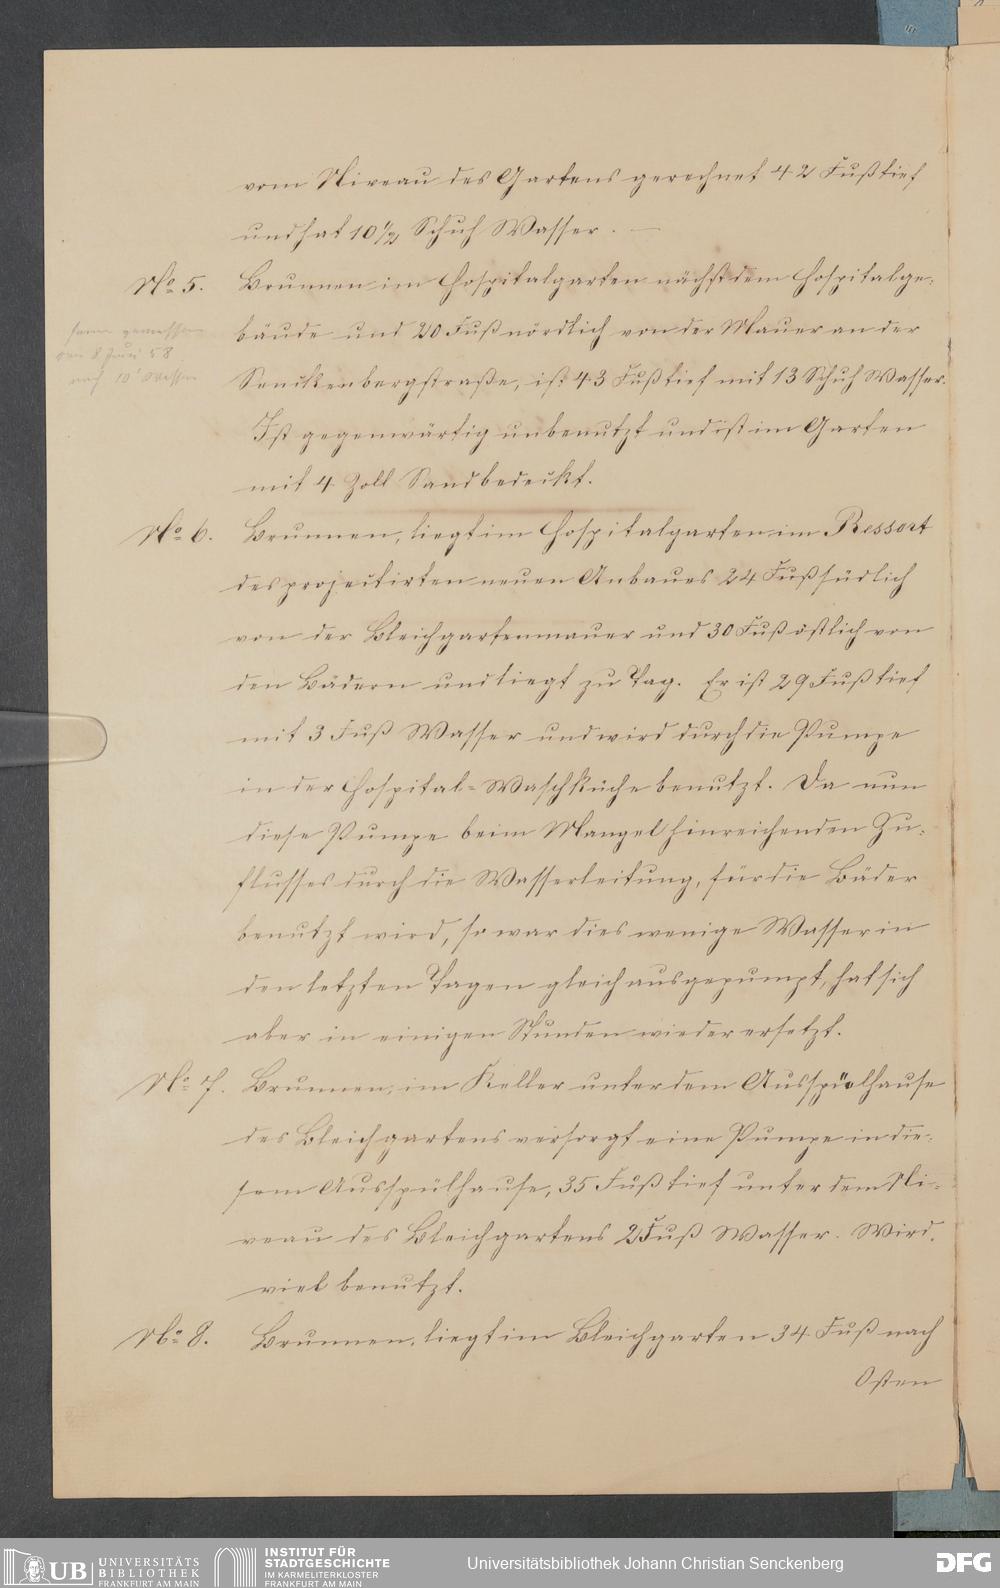 vom Niveau des Gartens gerechnet 42 Fuß tief
und hat 10 1/2 Schuh Wasser. —
No 5. Brunnen im Hospitalgarten nächst dem Hospitalge-
bäude und 20 Fuß nördlich von der Mauer an der
den 8 Juni 58
noch 10' Wasser
Senckenbergstraße, ist 43 Fuß tief mit 13 Schuh Wasser.
Ist gegenwärtig unbenutzt und ist im Garten
mit 4 Zoll Sand bedeckt.
No 6. Brunnen, liegt im Hospitalgarten im Ressort
des projectirten neuen Anbaues 24 Fuß südlich
von der Bleichgartenmauer und 30 Fuß östlich von
den Bädern und liegt zu Tag. Er ist 29 Fuß tief
mit 3 Fuß Wasser und wird durch die Pumpe
in der Hospital-Waschküche benutzt. Da nun
diese Pumpe beim Mangel hinreichenden Zu-
flusses durch die Wasserleitung, für die Bäder
benutzt wird, so war dies wenige Wasser in
den letzten Tagen gleich ausgepumpt, hat sich
aber in einigen Stunden wieder ersetzt.
No 7. Brunnen, im Keller unter dem Ausspülhause
des Bleichgartens versorgt eine Pumpe in die-
sem Ausspülhause, 35 Fuß tief unter dem Ni-
veau des Bleichgartens 2 Fuß Wasser. Wird
viel benutzt.
No 8. Brunnen, liegt im Bleichgarten 34 Fuß nach
Osten
UB UNIVERSITÄTS
BIBLIOTHEK
FRANKFURT AM MAIN
INSTITUT FÜR
STADTGESCHICHTE
IM KARMELITERKLOSTER
FRANKFURT AM MAIN
Universitätsbibliothek Johann Christian Senckenberg
DFG